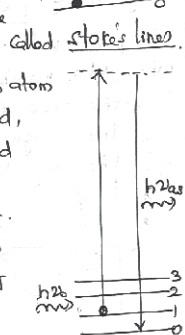 0
called stoke's lines.
atom
d,
d
hνas
3
2
hν0
1
0